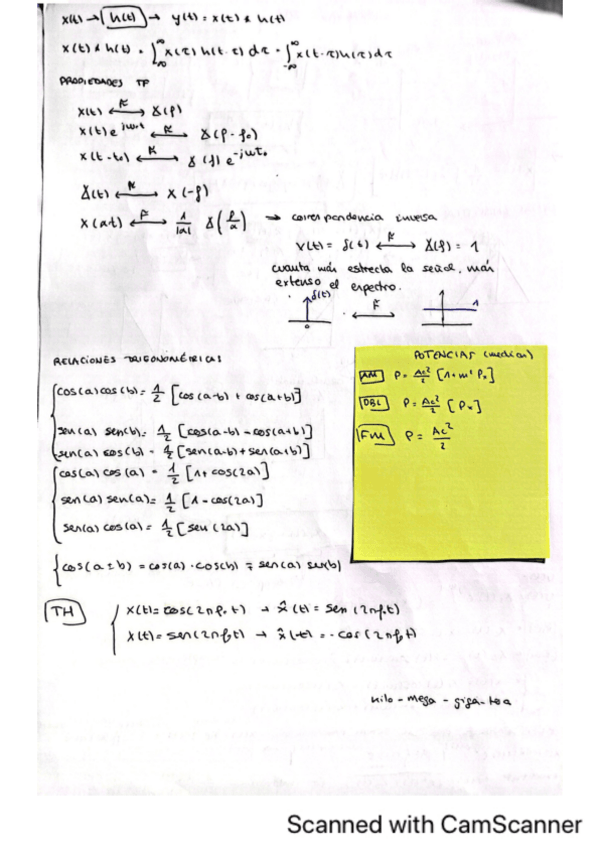 x(t) → h(t) → y(t) = x(t) * h(t)
x(t) * h(t) = ∫_{-∞}^{∞} x(τ) h(t-τ) dτ = ∫_{-∞}^{∞} x(t-τ) h(τ) dτ
PROPIEDADES TF
x(t) ⟷F X(f)
x(t) e^{jω₀t} ⟷F X(f-f₀)
x(t-t₀) ⟷F X(f) e^{-jωt₀}
X(t) ⟷F x(-f)
x(at) ⟷F 1/|a| X(f/a) → correspondencia inversa
v(t) = δ(t) ⟷F X(f) = 1
cuanta más estrecta la señal, más
extenso el espectro.
δ(t)
0
F
1
RELACIONES TRIGONOMÉTRICAS
cos(a) cos(b) = 1/2 [cos(a-b) + cos(a+b)]
sen(a) sen(b) = 1/2 [cos(a-b) - cos(a+b)]
sen(a) cos(b) = 1/2 [sen(a-b) + sen(a+b)]
cos(a) cos(a) = 1/2 [1 + cos(2a)]
sen(a) sen(a) = 1/2 [1 - cos(2a)]
sen(a) cos(a) = 1/2 [sen(2a)]
cos(a±b) = cos(a)·cos(b) ∓ sen(a) sen(b)
POTENCIAS (medias)
AM P = Ac²/2 [1 + m² Px]
DBL P = Ac²/2 [Px]
FM P = Ac²/2
TH
x(t) = cos(2πf₀t) → x̂(t) = sen(2πf₀t)
x(t) = sen(2πf₀t) → x̂(t) = -cos(2πf₀t)
kilo - mega - giga - tera
Scanned with CamScanner